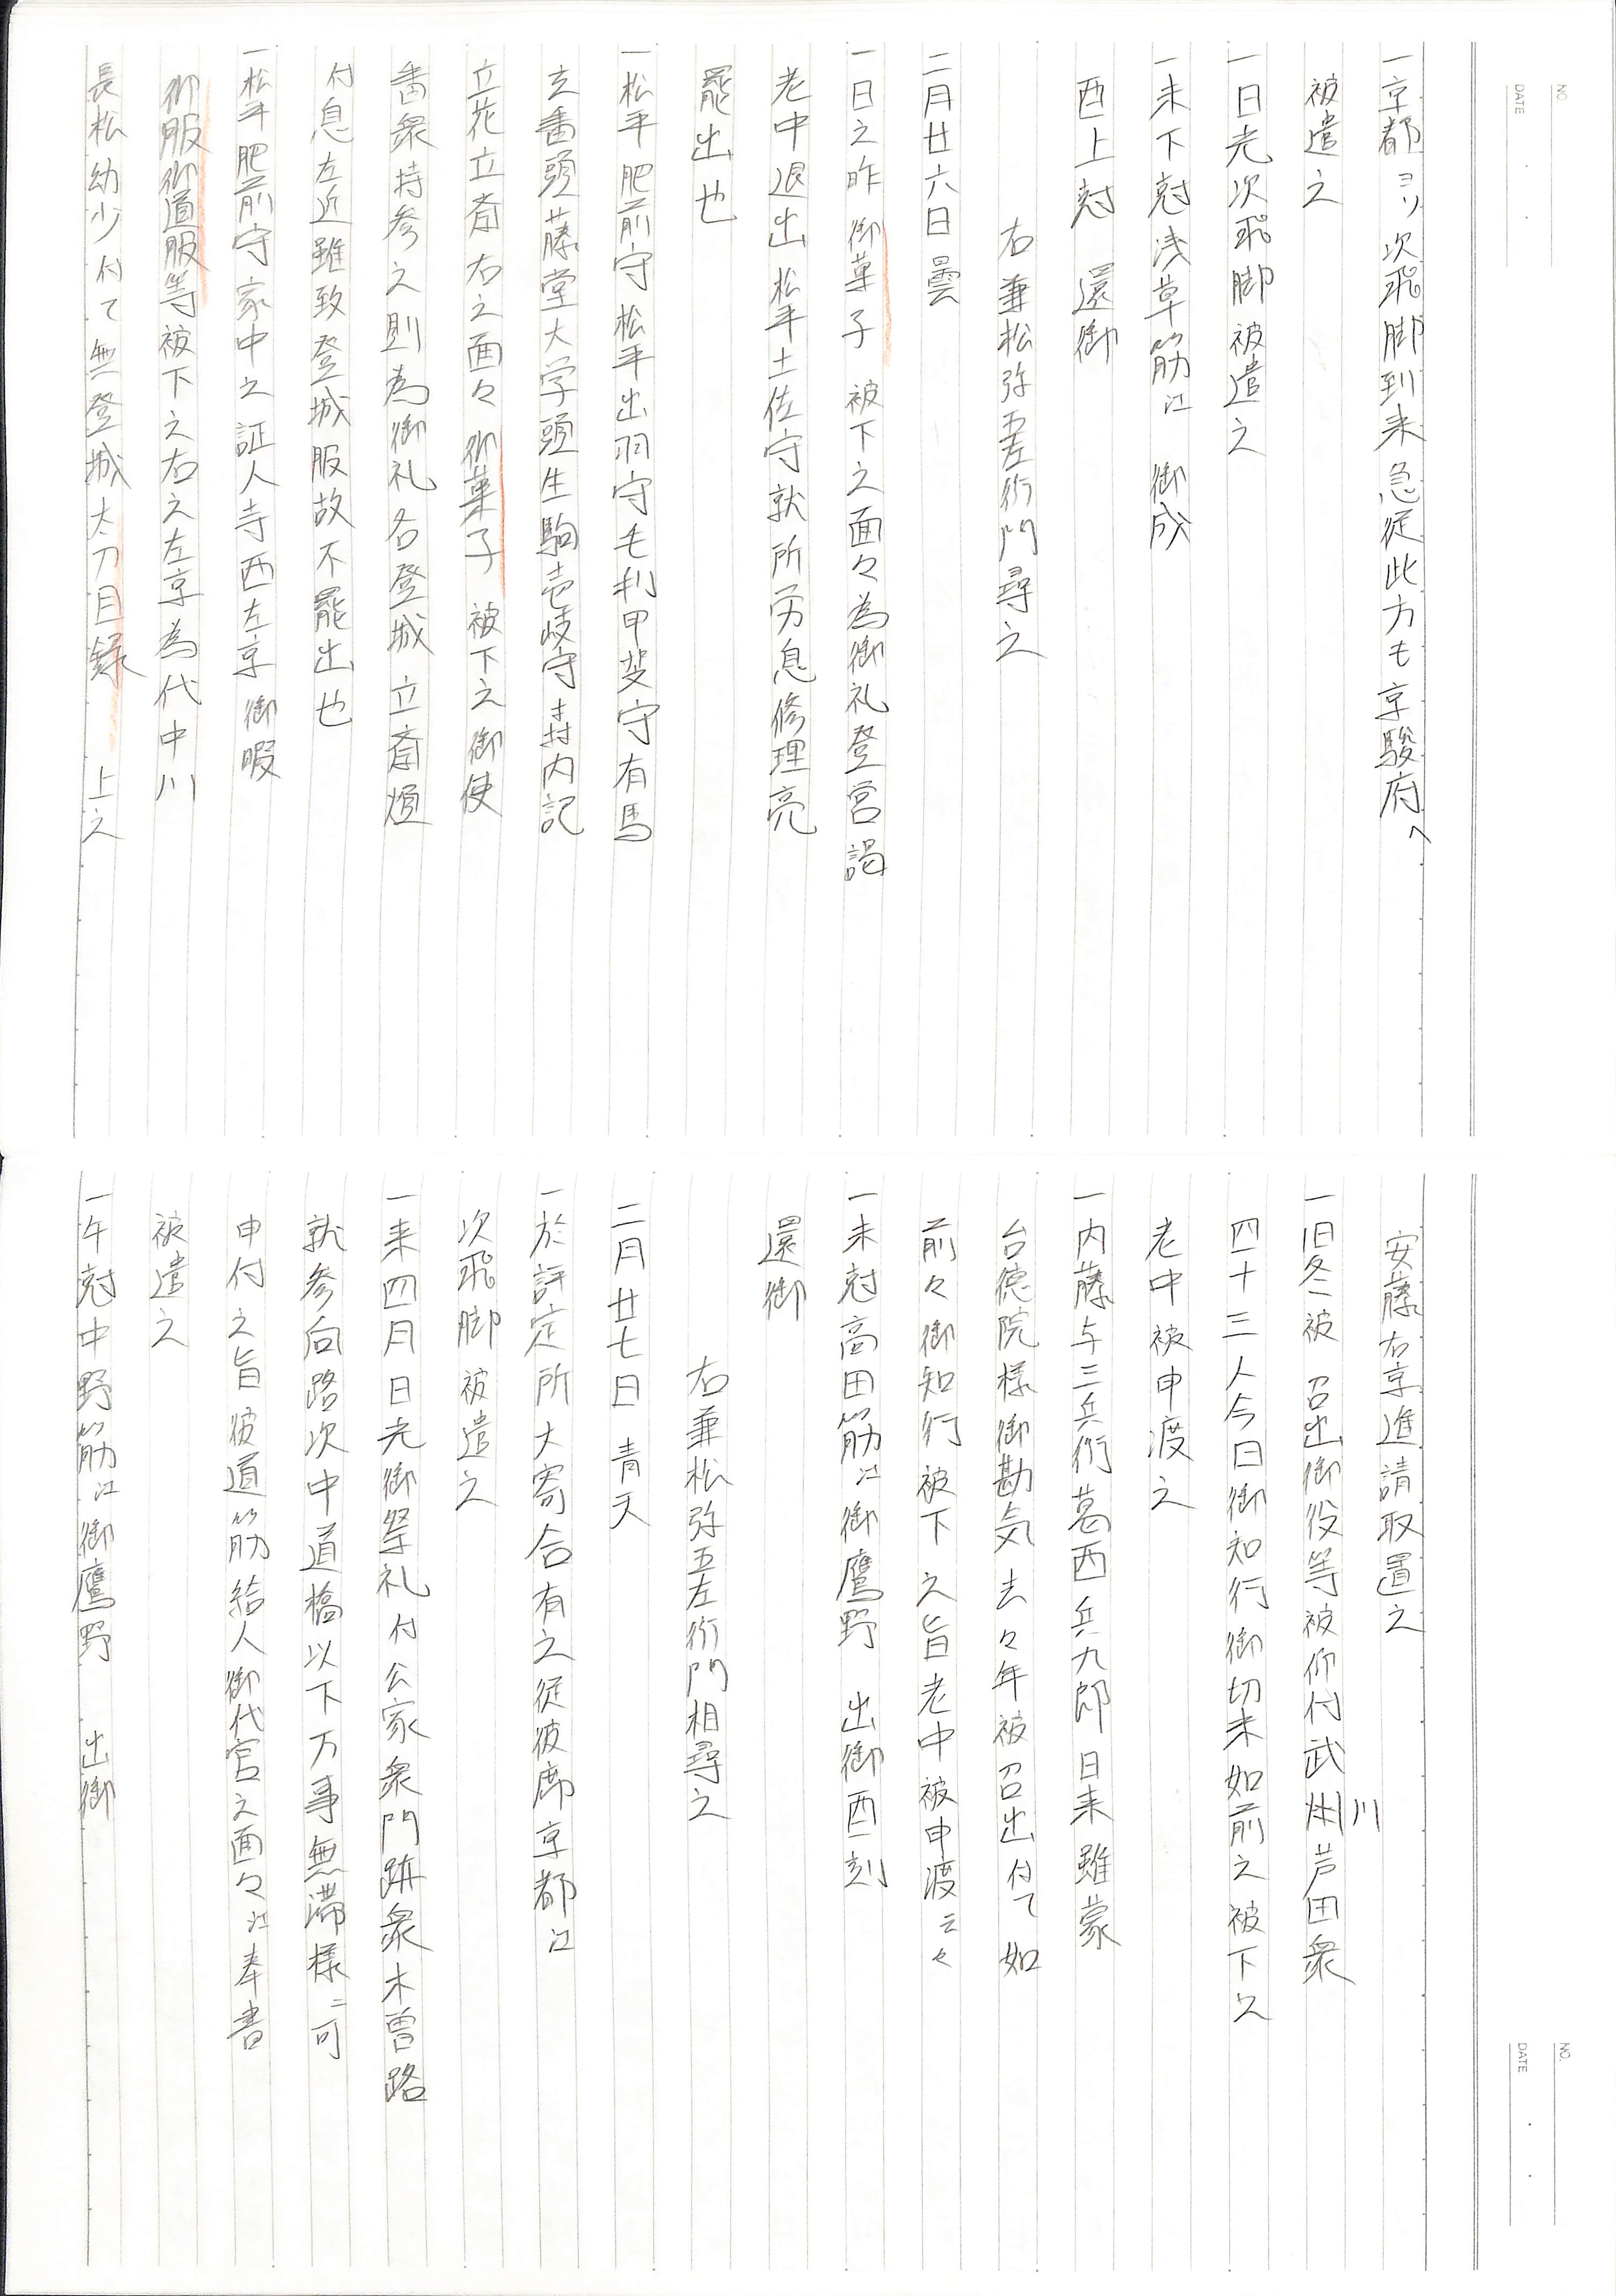 NO.
DATE
一京都ヨリ次飛脚到来急従此方も京駿府へ
被遣之
一日光次飛脚被遣之
一未下尅浅草筋江 御成
酉上尅 還御
右兼松弥五左衛門尋之
二月廿六日曇
一日之昨御菓子 被下之面々為御礼登営謁
老中退出松平土佐守就所労息修理亮
罷出也
一松平肥前守松平出羽守毛利甲斐守有馬
玄番頭藤堂大学頭生駒壱岐守 内記
立花立斎右之面々御菓子 被下之御使
番衆持参之則為御礼各登城立斎煩
付息左近雖致登城服故不罷出也
一松平肥前守家中之証人寺西左京御暇
御服御道服等被下之右之左京為代中川
長松幼少付て無登城太刀目録 上之
NO.
DATE
安藤右京進請取置之
一旧冬被 召出御役等被仰付武川芦田衆
四十三人今日御知行御切米如前之被下之
老中被申渡之
一内藤与三兵衛葛西兵九郎日来雖蒙
台徳院様御勘気去々年被召出付て如
前々御知行被下之旨老中被申渡云々
一未尅高田筋江御鷹野 出御酉刻
還御
右兼松弥五左衛門相尋之
二月廿七日 青天
一於評定所大寄合有之従彼席京都江
次飛脚被遣之
一来四月日光御祭礼付公家衆門跡衆木曽路
就参向路次中道橋以下万事無滞様ニ可
申付之旨彼道筋給人御代官之面々江奉書
被遣之
一午尅中野筋江御鷹野 出御